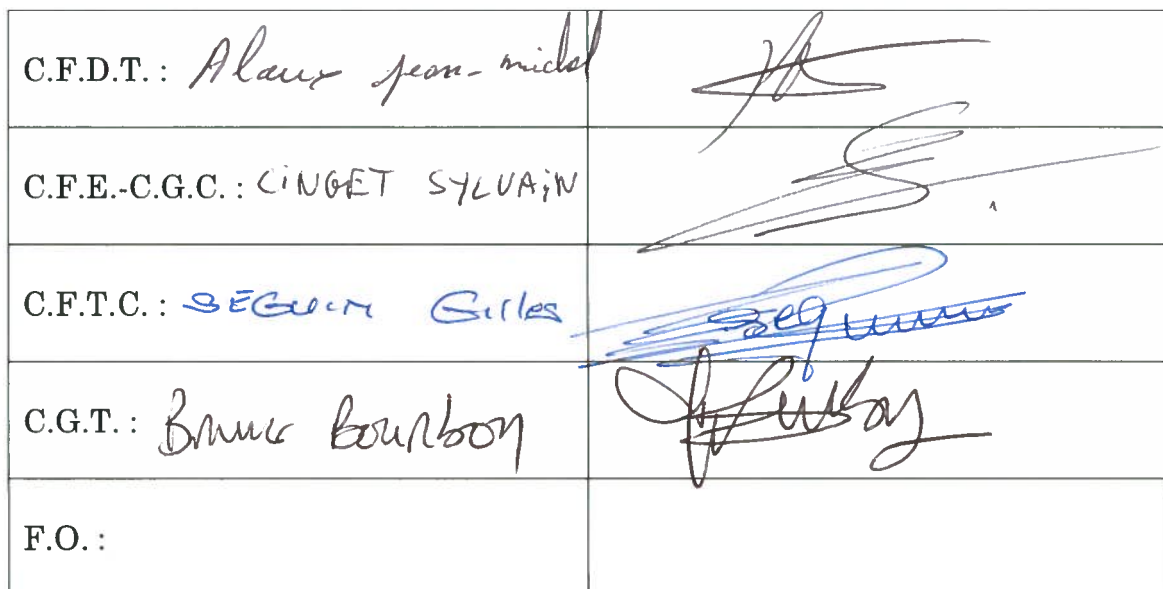 C.F.D.T. : Alaux jean-michel
C.F.E.-C.G.C. : CiNGET SYLVAiN
C.F.T.C. : SEGUIN Gilles
Seguin
C.G.T. : Bruno Bourbon
F.O. :